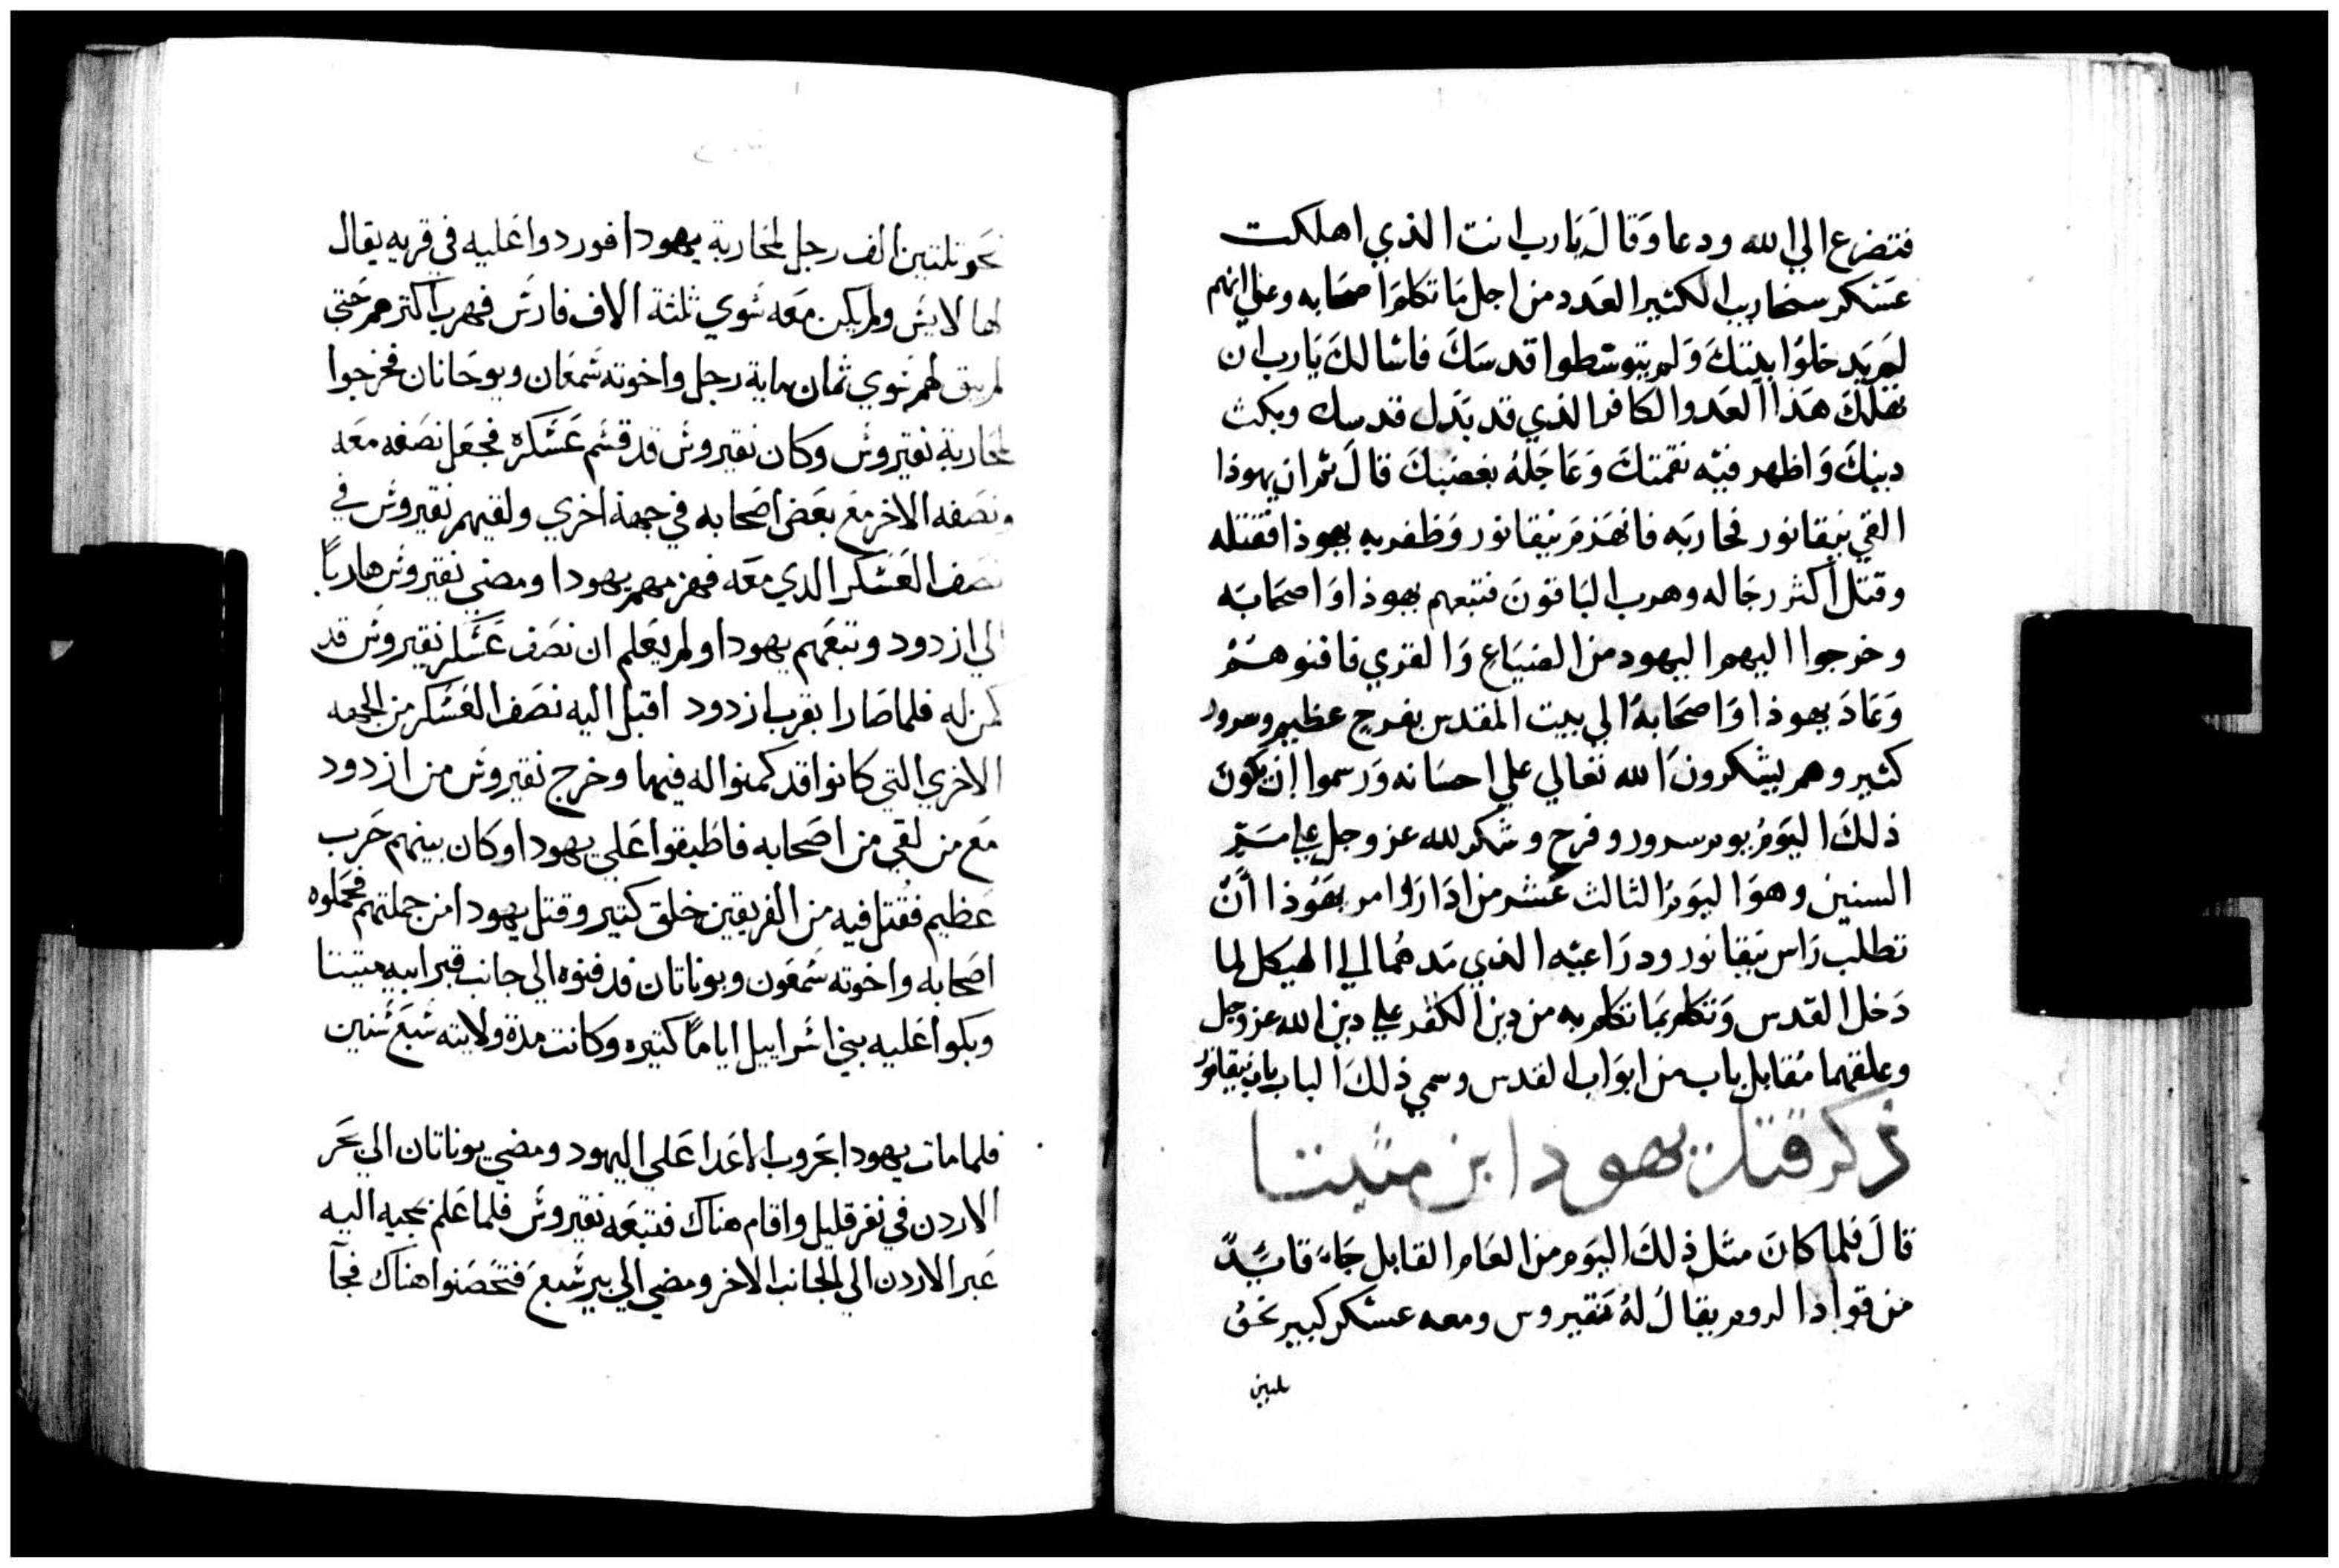 فتضرع الي الله ودعا وَقالَ يَارب انت الذي اهلكت
عَسْكر سنحاريب الكثير العَدد من اجل مَا تكلموَا اصحَابه وعلي انهم
لم يَدخلوُا بيتكَ وَلم يتوسَطوا قدسَكَ فاسَالكَ يَارب ان
تهلكَ هَذا العَدو الكافر الذي قد بَدَل قدسك وبكت
دينكَ وَاظهر فيَه نقمتكَ وَعَاجَلهُ بغضبكَ قالَ ثمر ان يهوذا
القي نيقانور فحاربَه فانهَزمَ نيقانور وَظفر به يهوذا فقتله
وقتل أكثر رجَاله وهرب البَاقونَ فتبعهم يهوذا وَاصحَابَه
وخرجوا اليهم اليهود من الضيَاع وَالقري فافنوهُمْ
وَعَادَ يهوذا وَاصحَابهُ الي بيت المقدس بفرح عظيم وسرور
كثير وهم يشكرونَ الله تعَالي علي احسَانه وَرسموا إن يكونَ
ذلكَ اليَومُ يوم سرور وفرح وشكر لله عز وجل علي مَمَر
السنين وهوَ اليَومُ الثالث عَشر من ادَار وَامر يهَوُذا أنَّ
تطلب رَاس نيقانور ودرَاعيَه الذي مَدهُما الي الهيَكل لما
دَخل القدس وَتكلم بمَا تكلم به من دين الكفر علي دين الله عز وجل
وعلقهما مُقابل باب من ابوَاب القدس وسمي ذلكَ الباب باب نيقانورُ
ذكر قتل يهودا بن متيتنا
قالَ فلما كانَ مثل ذلكَ اليَوم من العَام القابل جَاءَ قايَدً
من قواد الروم يقالُ لهُ نقيروس ومعه عسكر كبير نحوُ
ثلثين
نحَو تلتين الف رجل لمحَاربة يهودا فوردوا عَليه في قريه يقال
لها لايشَ ولم يكن معَه سَوي ثلثة الاف فارسَ فهرب اكترهم حَتي
لم يبق لهم سَوي ثمان ماية رجل واخوته شَمعَان ويوحَانان فخرجوا
لمحَاربة نقيروسَ وكان نقيروسَ قد قسَم عَسَكره فجعَل نصَفه معَه
ونصَفه الاخر معَ بعَض اصَحَابه في جهة اخري ولقيهم نقيروسَ في
نصَف العَسَكر الدي معَه فهزمهم يهودا ومضي نقيروسَ هاربًا
الي ازدود وتبعَهم يهودا ولم يعَلم ان نصَف عَسَكر نقيروسَ قد
كمن له فلما صَارا بقرب ازدود اقبل اليه نصَف العَسَكر من الجهه
الاخري التي كانوا قد كمنوا له فيها وخرج نقيروسَ من ازدود
معَ من لقي من اصَحَابه فاطَبقوا عَلي يهودا وكان بينهم حَرب
عَظيم فقُتل فيه من الفريقين خلق كتير وقتل يهودا من جملتهم فحَملوه
اصَحَابه واخوته شَمعَون ويوناتان قد فنوه الي جانب قبر ابيه متيتنا
وبكوا عَليه بني اسَراييل ايامًا كتيره وكانت مدة ولايته سَبعَ سَنين
فلما مات يهودا تحَروب الاعَدا عَلي اليهود ومضي يوناتان الي بحَر
الاردن في نفر قليل واقام هناك فتتبعَه نقيروسَ فلما عَلم بمجيه اليه
عَبر الاردن الي الجانب الاخر ومضي الي بير شَبعَ فتحَصَنوا هناك فجآ